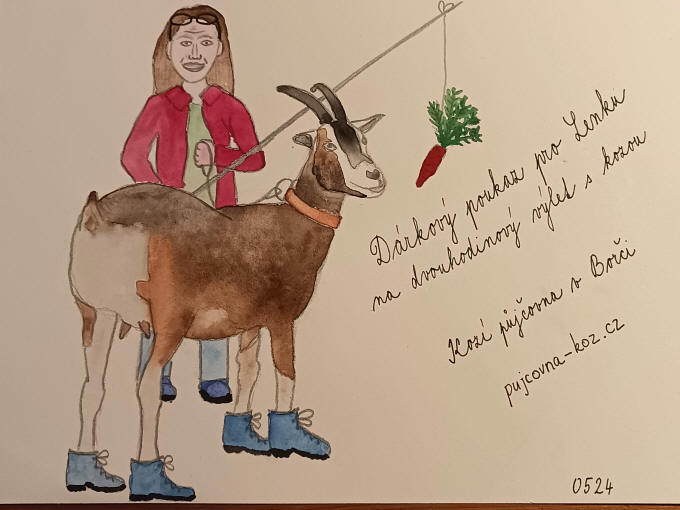 Dárkový poukaz pro Lenku
na dvouhodinový výlet s kozou
Kozí půjčovna v Borči
pujcovna-koz.cz
0524